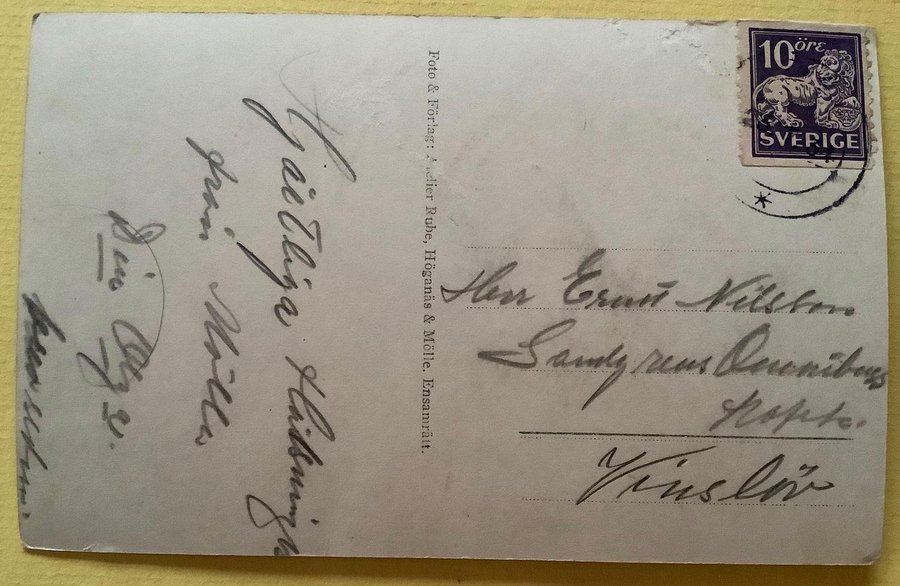 Hjärtliga Hälsningar
från Mölle
Din Olga
Foto & Förlag: Atelier Rube, Höganäs & Mölle. Ensamrätt.
10 öre
SVERIGE
Herr Ernst Nilsson
Sandgrens Omnibuss
Vinslöv